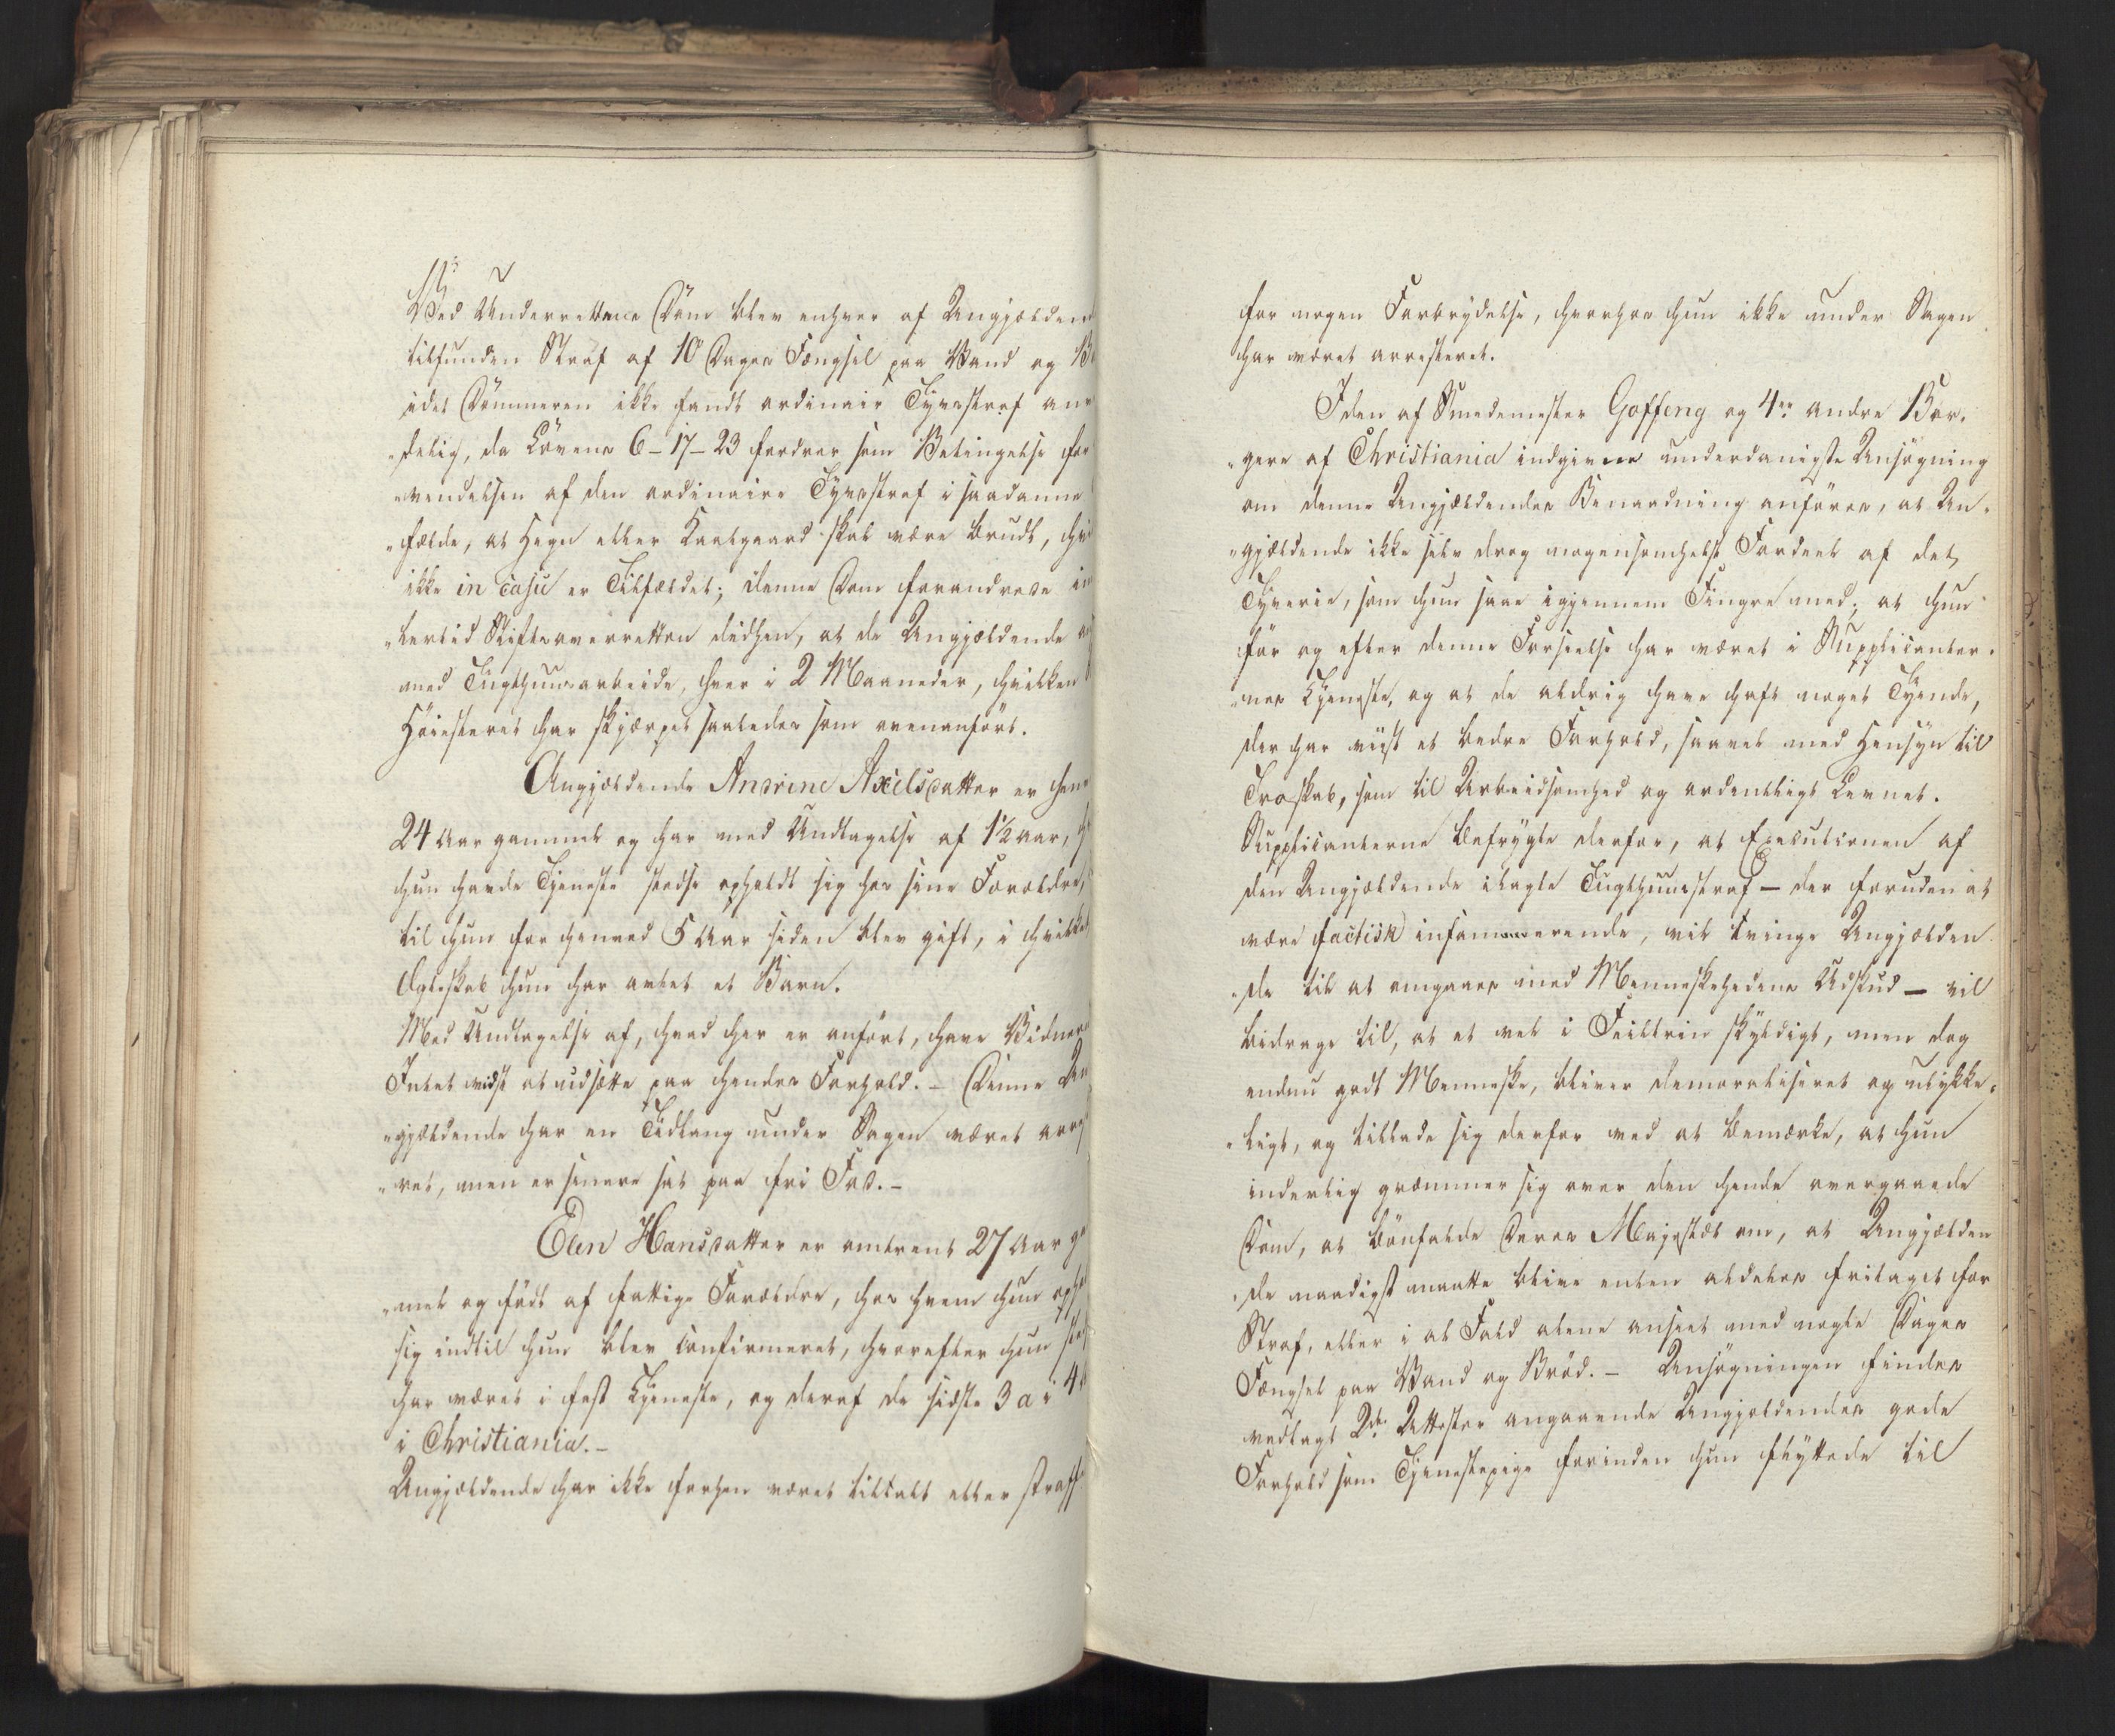 Ved Underrettens Dom blev enhver af Angjældend
tilfunden Straf af 10 Dages Fængsel paa Vand og B
idet Dommeren ikke fandt ordinair Tyvsstraf anv
„delig, da Lovens 6-17-23 fordrer som Betingelse for
„vendelsen af den ordinaire Tyvsstraf i saadanne
„fælde, at Hegn eller Kaalgaard skal være brudt, hvi
ikke in casu er Tilfældet; denne Dom forandrede im
„lertid Stiftsoverretten didhen, at de Angjældende
med Tugthuusarbeide, hver i 2 Maaneder, hvilken
Höiesteret har skjærpet saaledes som ovenanfört.
Angjældende Andrine Axelsdatter er hen
24 Aar gammel og har med Undtagelse af 1½ Aar,
hun havde Tjeneste stedse opholdt sig hos sine Forældre,
til hun for henved 5 Aar siden blev gift, i hvilket
Ægteskab hun har avlet et Barn.
Med Undtagelse af, hvad her er anfört, have Vidner
Intet vidst at udsætte paa hendes Forhold. - Denne An
„gjældende har en Tidlang under Sagen været arre
„ret, men er senere sat paa fri Fod. -
Elen Hansdatter er omtrent 27 Aar ga
„mel og födt af fattige Forældre, hos hvem hun oph
sig indtil hun blev confirmeret, hvorefter hun
har været i fast Tjeneste, og deraf de sidste 3 a 4
i Christiania. -
Angjældende har ikke forhen været tiltalt eller straffe
for nogen Forbrydelse, hvorhos hun ikke under Sagen
har været arresteret.
I den af Smedemester Goffeng og 4re andre Bor-
„gere af Christiania indgivne underdanigste Ansögning
om denne Angjældendes Benaadning anföres, at An-
„gjældende ikke selv drog nogensomhelst Fordeel af det
Tyverie, som hun saae igjennem Fingre med; at hun
för og efter denne Forseelse har været i Supplicanter-
„nes Tjeneste, og at de aldrig have haft noget Tyende,
der har viist et bedre Forhold, saavel med Hensyn til
Troskab, som til Arbeidsomhed og ordentligt Levnet.
Supplicanterne befrygte derfor, at Executionen af
den Angjældende ilagte Tugthuusstraf - der foruden at
være factisk infammerende, vil tvinge Angjælden
„de til at omgaaes med Menneskehedens Udskud - vil
bidrage til, at et vel i Feiltrin skyldigt, men dog
endnu godt Menneske, bliver demoraliseret og ulykke-
„ligt, og tillade sig derfor ved at bemærke, at hun
inderlig græmmer sig over den hende overgaaede
Dom, at bönfalde Deres Majestæt om, at Angjælden
„de naadigst maatte blive enten aldeles fritaget for
Straf, eller i al Fald alene anseet med nogle Dages
Fængsel paa Vand og Bröd. - Ansögningen findes
vedlagt 2de Attester angaaende Angjældendes gode
Forhold som Tjenestepige forinden hun flyttede til